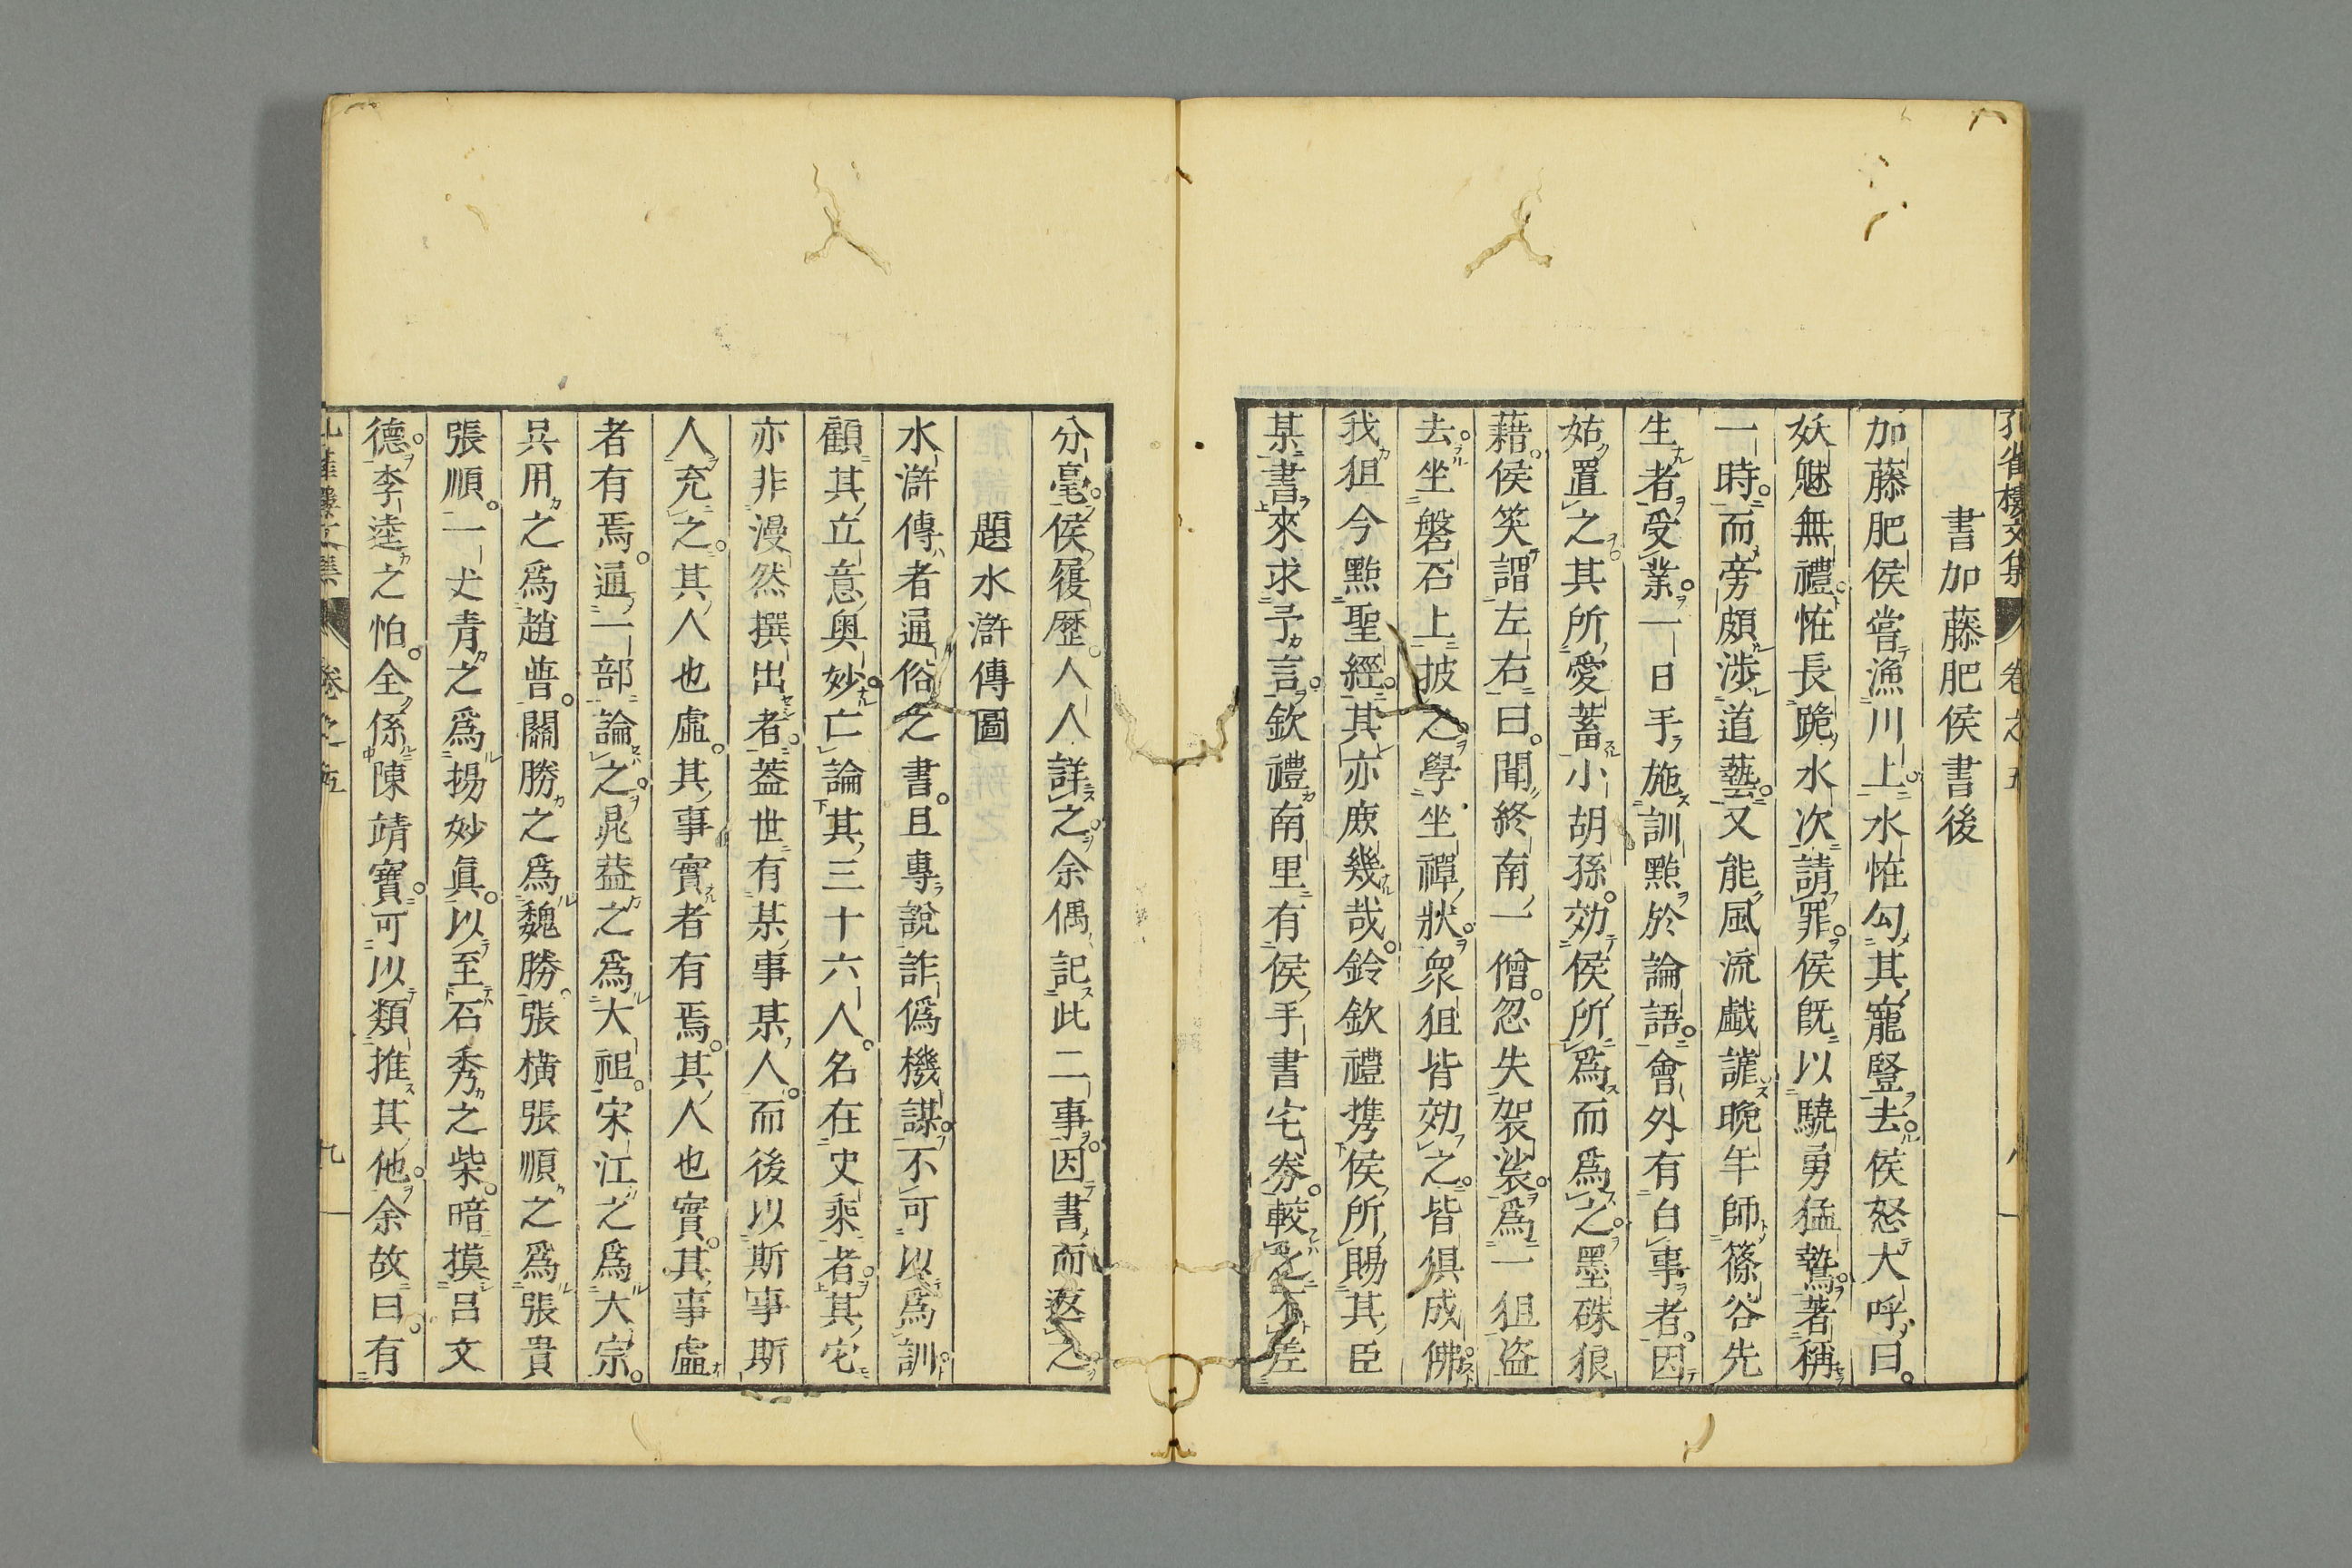 孔雀樓文集 卷之五 八
書加藤肥侯書後
加藤肥侯嘗漁川上水恠勾其寵豎去侯怒大呼曰
妖魅無禮恠長跪水次請罪侯既以驍勇猛鷙著稱
一時而旁頗涉道藝又能風流戲謔晩年師篠谷先
生者受業一日手施訓㸃於論語會外有白事者因
姑置之其所愛蓄小胡孫効侯所爲而爲之墨硃狼
藉侯笑謂左右曰聞終南一僧忽失袈裟爲一狙盜
去坐磐石上披之學坐禪狀衆狙皆効之皆俱成佛
我狙今㸃聖經其亦庻幾哉鈴欽禮携侯所賜其臣
某書來求予言欽禮南里有侯手書宅劵較之不差
分毫侯履歷人人詳之余偶記此二事因書而返之
題水滸傳圖
水滸傳者通俗之書且專說詐僞機謀不可以爲訓
顧其立意奥妙亡論其三十六人名在史乘者其宅
亦非漫然撰出者葢世有某事某人而後以斯事斯
人充之其人也虛其事實者有焉其人也實其事虛
者有焉通一部論之晁葢之爲大祖宋江之爲大宗
呉用之爲趙普關勝之爲魏勝張横張順之爲張貴
張順一丈青之爲揚妙眞以至石秀之柴暗摸呂文
德李逵之怕全係陳靖寶可以類推其他余故曰有
孔雀樓文集 卷之五 九